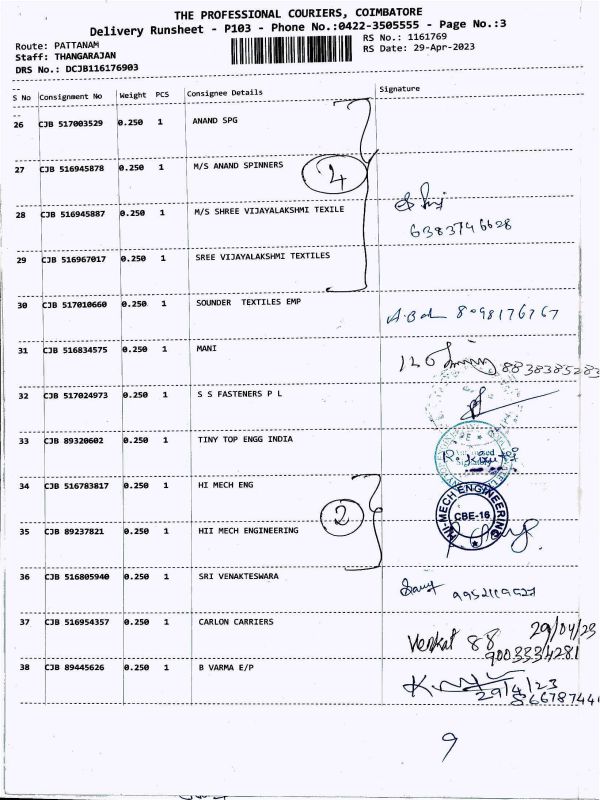 THE PROFESSIONAL COURIERS, COIMBATORE
Delivery Runsheet - P103 - Phone No.:0422-3505555 - Page No.:3
Route: PATTANAM
RS No.: 1161769
Staff: THANGARAJAN
RS Date: 29-Apr-2023
DRS No.: DCJB116176903
S No Consignment No Weight PCS Consignee Details Signature
26 CJB 517003529 0.250 1 ANAND SPG
27 CJB 516945878 0.250 1 M/S ANAND SPINNERS
4
28 CJB 516945887 0.250 1 M/S SHREE VIJAYALAKSHMI TEXILE
6383746628
29 CJB 516967017 0.250 1 SREE VIJAYALAKSHMI TEXTILES
30 CJB 517010660 0.250 1 SOUNDER TEXTILES EMP
8098176767
31 CJB 516834575 0.250 1 MANI
8838385283
32 CJB 517024973 0.250 1 S S FASTENERS P L
33 CJB 89320602 0.250 1 TINY TOP ENGG INDIA
34 CJB 516783817 0.250 1 HI MECH ENG
2
HI-MECH ENGINEERING
CBE-16
35 CJB 89237821 0.250 1 HII MECH ENGINEERING
36 CJB 516805940 0.250 1 SRI VENAKTESWARA
37 CJB 516954357 0.250 1 CARLON CARRIERS
Venkat 88 29/04/23
9003334281
38 CJB 89445626 0.250 1 B VARMA E/P
29/4/23
9